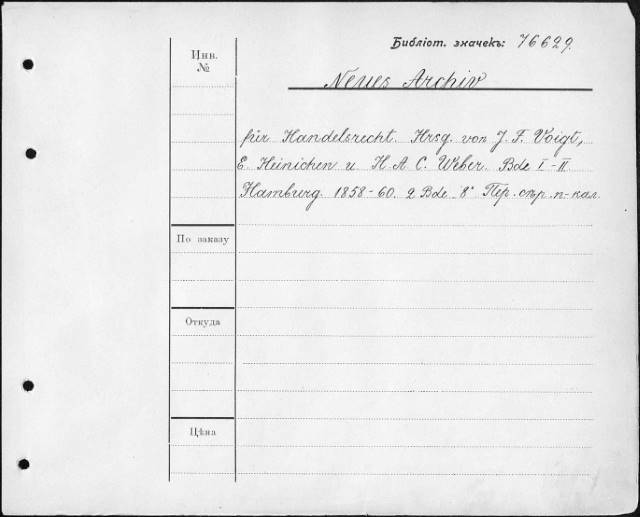 Библіот. значекъ: 76629.
Инв.
№
Neues Archiv
für Handelsrecht. Hrsg. von J. F. Voigt,
E. Heinichen u. H. A. C. Weber. Bde I-II
Hamburg. 1858-60. 2 Bde. 8° Пер. стр. п-кал.
По заказу
Откуда
Цѣна